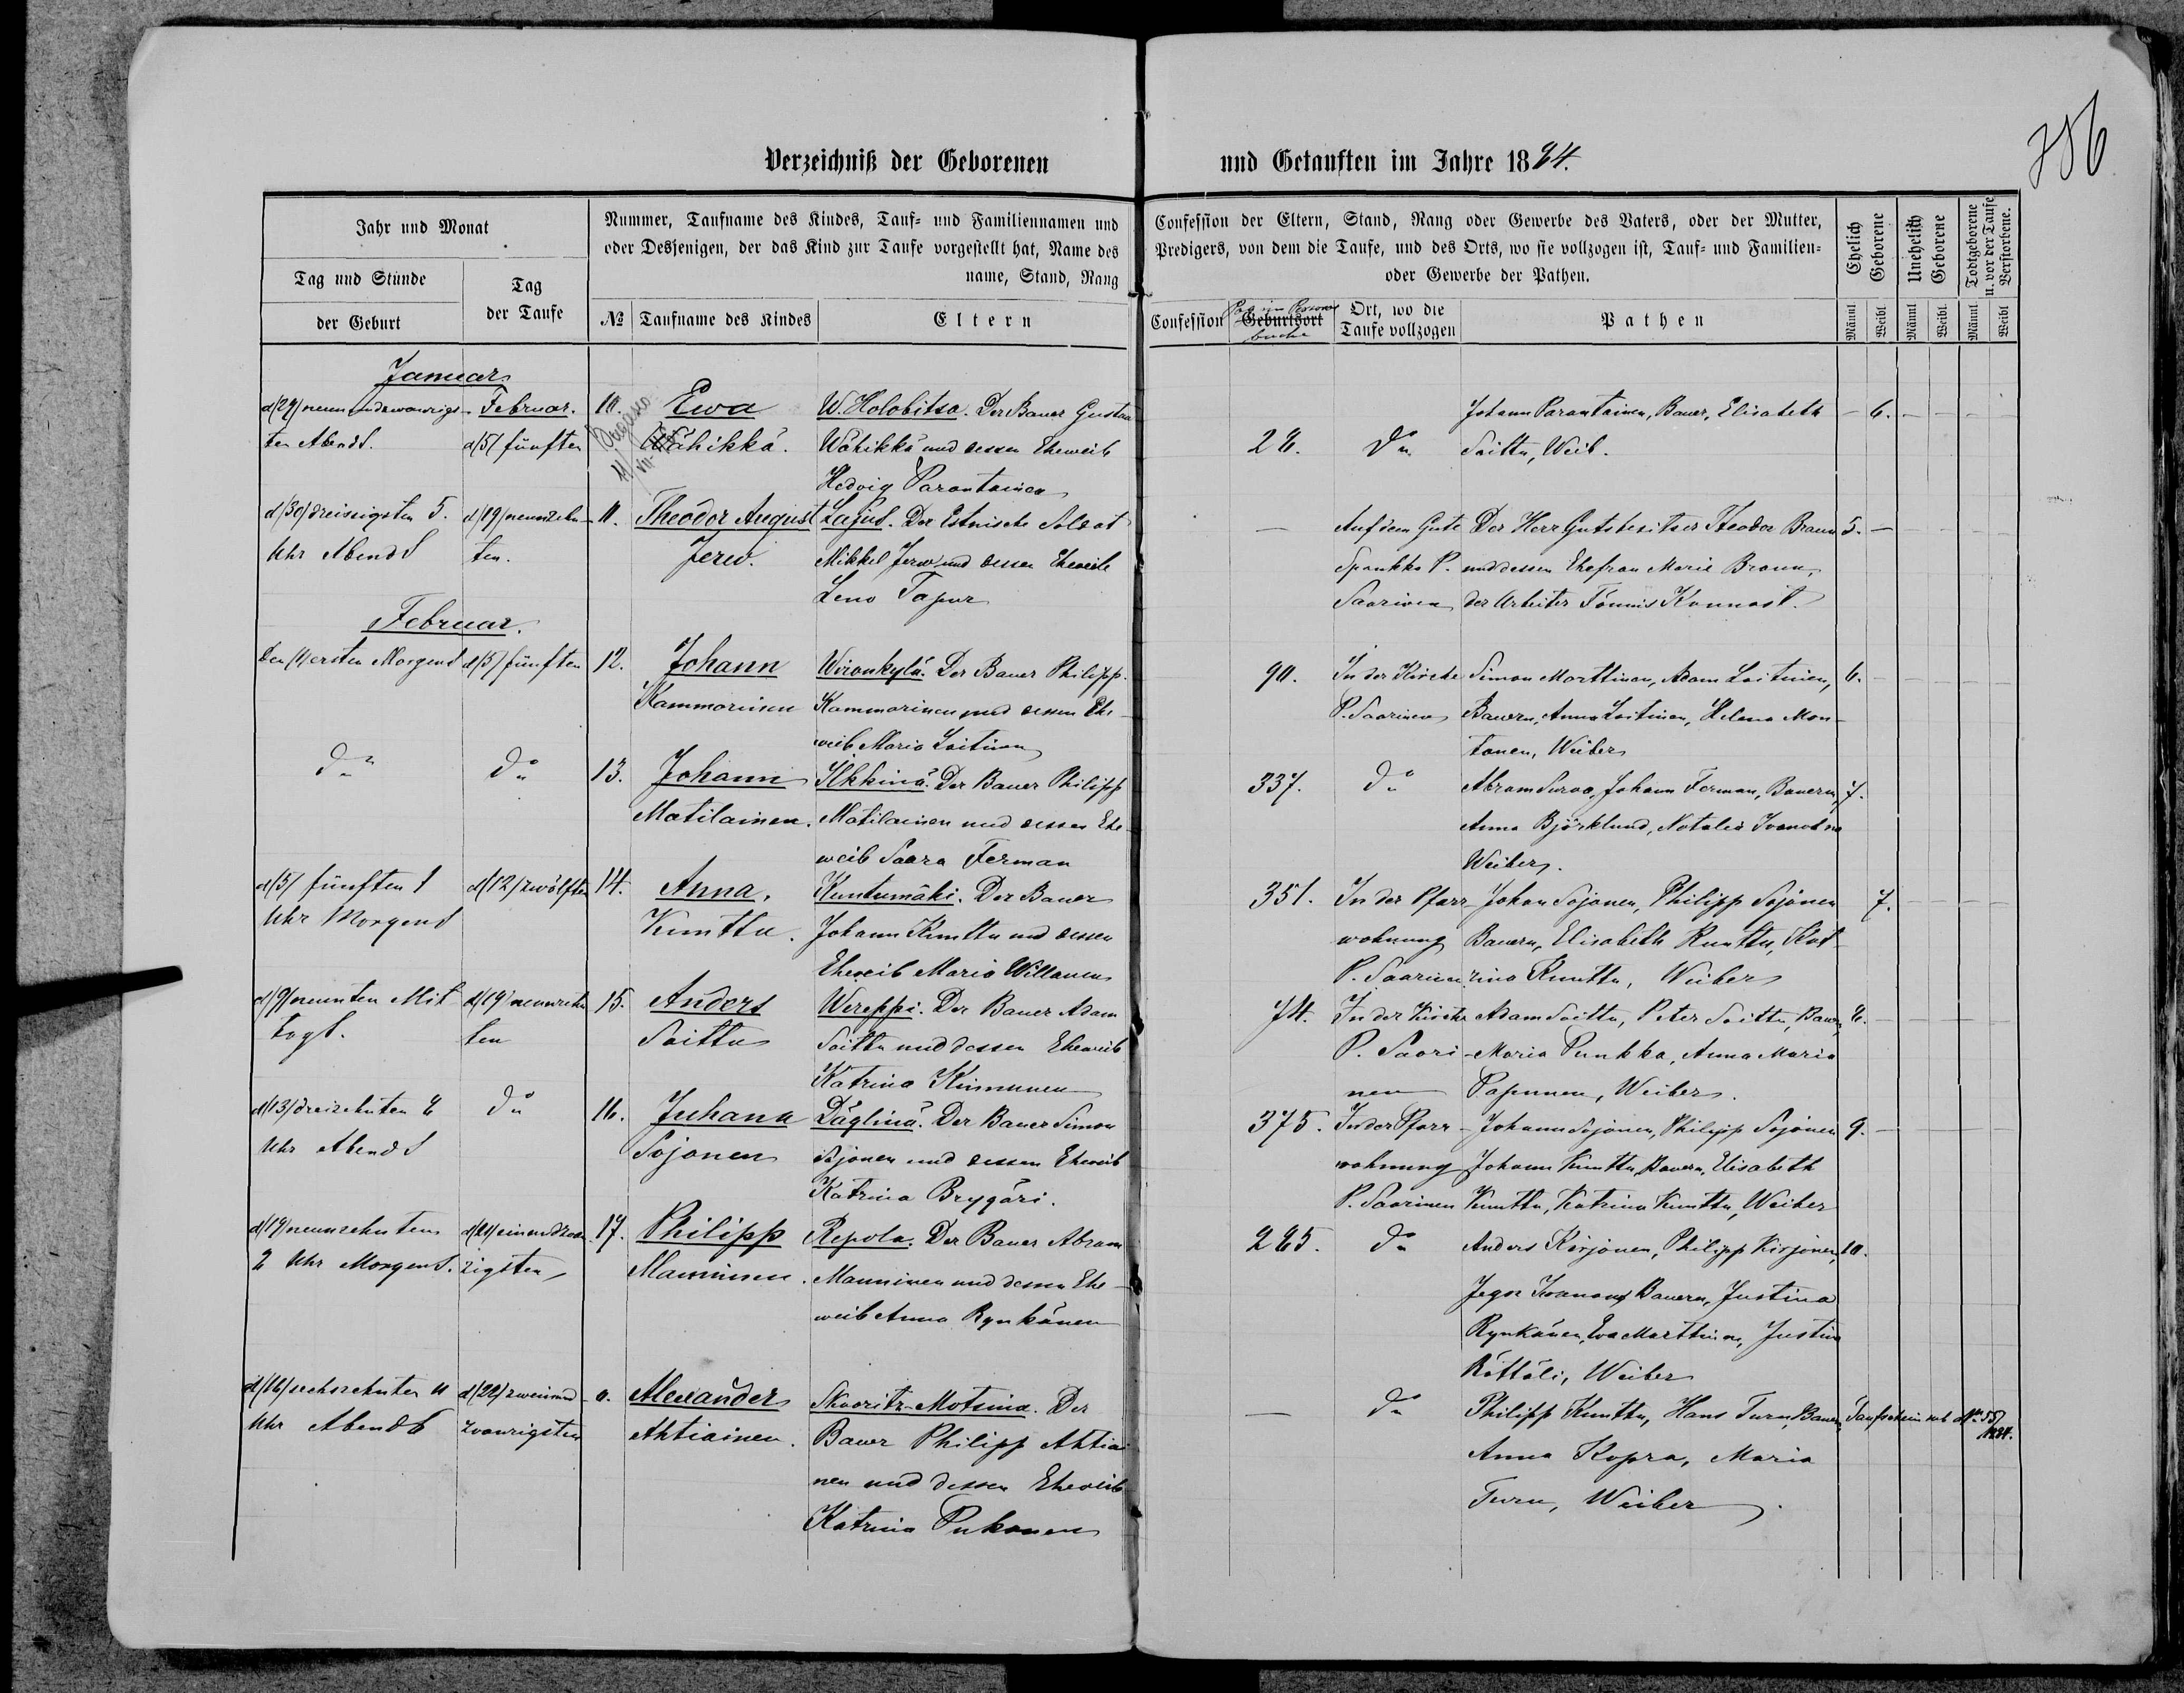 786
Verzeichniß der Geborenen und Getauften im Jahre 1884.
Jahr und Monat
Tag und Stunde
der Geburt
Tag
der Taufe
Nummer, Taufname des Kindes, Tauf- und Familiennamen und
oder Desjenigen, der das Kind zur Taufe vorgestellt hat, Name des
name, Stand, Rang
№ Taufname des Kindes Eltern
Confession der Eltern, Stand, Rang oder Gewerbe des Vaters, oder der Mutter,
Predigers, von dem die Taufe, und des Orts, wo sie vollzogen ist, Tauf- und Familien-
oder Gewerbe der Pathen.
Confession Geburtsort
Pag im Personal
buche
Ort, wo die
Taufe vollzogen
Pathen
Ehelich
Geborene
Unehelich
Geborene
Todtgeborene
u. vor der Taufe
Verstorbene.
Männl Weibl Männl Weibl Männl Weibl
Januar
d/29/ neunundzwanzigs-
ten Abends.
Februar.
d/5/ fünften
10. Ewa
Wähikkä.
W. Holobitsa. Der Bauer Gustav
Wähikkä und dessen Eheweib
Hedvig Parantainen
28. do
Johann Parantainen, Bauer, Elisabeth
Saittu, Weib.
6.
d/30/ dreissigsten 5.
Uhr Abends
d/19/ neunzehn-
ten.
11. Theodor August
Jerw.
Der Estnische Soldat
Mikkel Jerw und dessen Eheweib
Leno Tapur
Auf dem Gute
Spankko P.
Saarinen
Der Herr Gutsbesitzer Theodor Braun
und dessen Ehefrau Marie Braun,
der Arbeiter Tönnis Konnast.
5.
Februar.
den /1/ ersten Morgens d/5/ fünften
12. Johann
Kammoninen
Wironkylä. Der Bauer Philipp
Kammoninen und dessen Ehe-
weib Maria Laitinen
90. In der Kirche
P. Saarinen
Simon Marttinen, Adam Laitinen,
Bauern, Anna Laitinen, Helena Mon-
tonen, Weiber
6.
do do
13. Johann
Matilainen.
Ilkkinä. Der Bauer Philipp
Matilainen und dessen Ehe-
weib Saara Ferman
337. do
Abram Surva, Johann Ferman, Bauern,
Anna Björklund, Natalia
Weiber.
7.
d/5/ fünften 1
Uhr Morgens
d/12/ zwölften
14. Anna.
Kunttu.
Kuntumäki. Der Bauer
Johann Kunttu und dessen
Eheweib Maria Willanen
351. In der Pfarr-
wohnung
P. Saarinen
Johan Sojonen, Philipp Sojonen
Bauern, Elisabeth Kunttu, Kat-
rina Kunttu, Weiber
7.
d/9/ neunten Mit-
tags.
d/19/ neunzehn-
ten
15. Anders
Saittu
Wereppi. Der Bauer Adam
Saittu und dessen Eheweib
Katrina Kinnunen
74. In der Kirche
P. Saari-
nen
Adam Saittu, Peter Saittu, Bauern,
Maria Punkka, Anna Maria
Papunen, Weiber.
8.
d/13/ dreizehnten 8
Uhr Abends
do
16. Juhana
Sojonen
Däglinä. Der Bauer Simon
Sojonen und dessen Eheweib
Katrina Brygäri.
375. In der Pfarr-
wohnung
P. Saarinen
Johann Sojonen, Philipp Sojonen
Johann Kunttu, Bauern, Elisabeth
Kunttu, Katrina Kunttu, Weiber
9.
d/19/ neunzehnten
2 Uhr Morgens.
d/21/ einundzwan-
zigsten
17. Philipp
Manninen.
Repola. Der Bauer Abram
Manninen und dessen Ehe-
weib Anna Rynkänen
285. do
Anders Kirjonen, Philipp Kirjonen,
Jegor Iwanow, Bauern, Justina
Rynkänen, Eva Marttinen, Justina
Röttöli, Weiber
10.
d/16/ sechszehnten 11
Uhr Abends
d/22/ zweiund-
zwanzigsten
0. Alexander
Ahtiainen.
Skvoritz-Motsina. Der
Bauer Philipp Ahtiai-
nen und dessen Eheweib
Katrina Pukonen
do
Philipp Kunttu, Hans Turu, Bauern,
Anna Kopra, Maria
Turu, Weiber.
Taufschein sub № 55
1884.